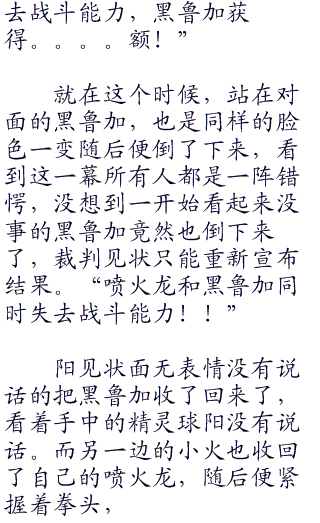 去战斗能力，黑鲁加获
得。。。。额！”
就在这个时候，站在对
面的黑鲁加，也是同样的脸
色一变随后便倒了下来，看
到这一幕所有人都是一阵错
愕，没想到一开始看起来没
事的黑鲁加竟然也倒下来
了，裁判见状只能重新宣布
结果。“喷火龙和黑鲁加同
时失去战斗能力！！”
阳见状面无表情没有说
话的把黑鲁加收了回来了，
看着手中的精灵球阳没有说
话。而另一边的小火也收回
了自己的喷火龙，随后便紧
握着拳头，